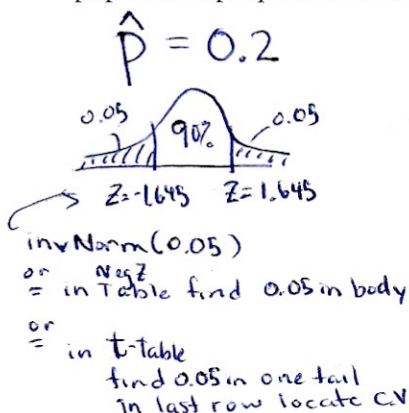 p̂ = 0.2
0.05 0.05
90%
Z=-1.645 Z=1.645
invNorm(0.05)
or NegZ
= in Table find 0.05 in body
or
= in t-table
find 0.05 in one tail
in last row locate C.V